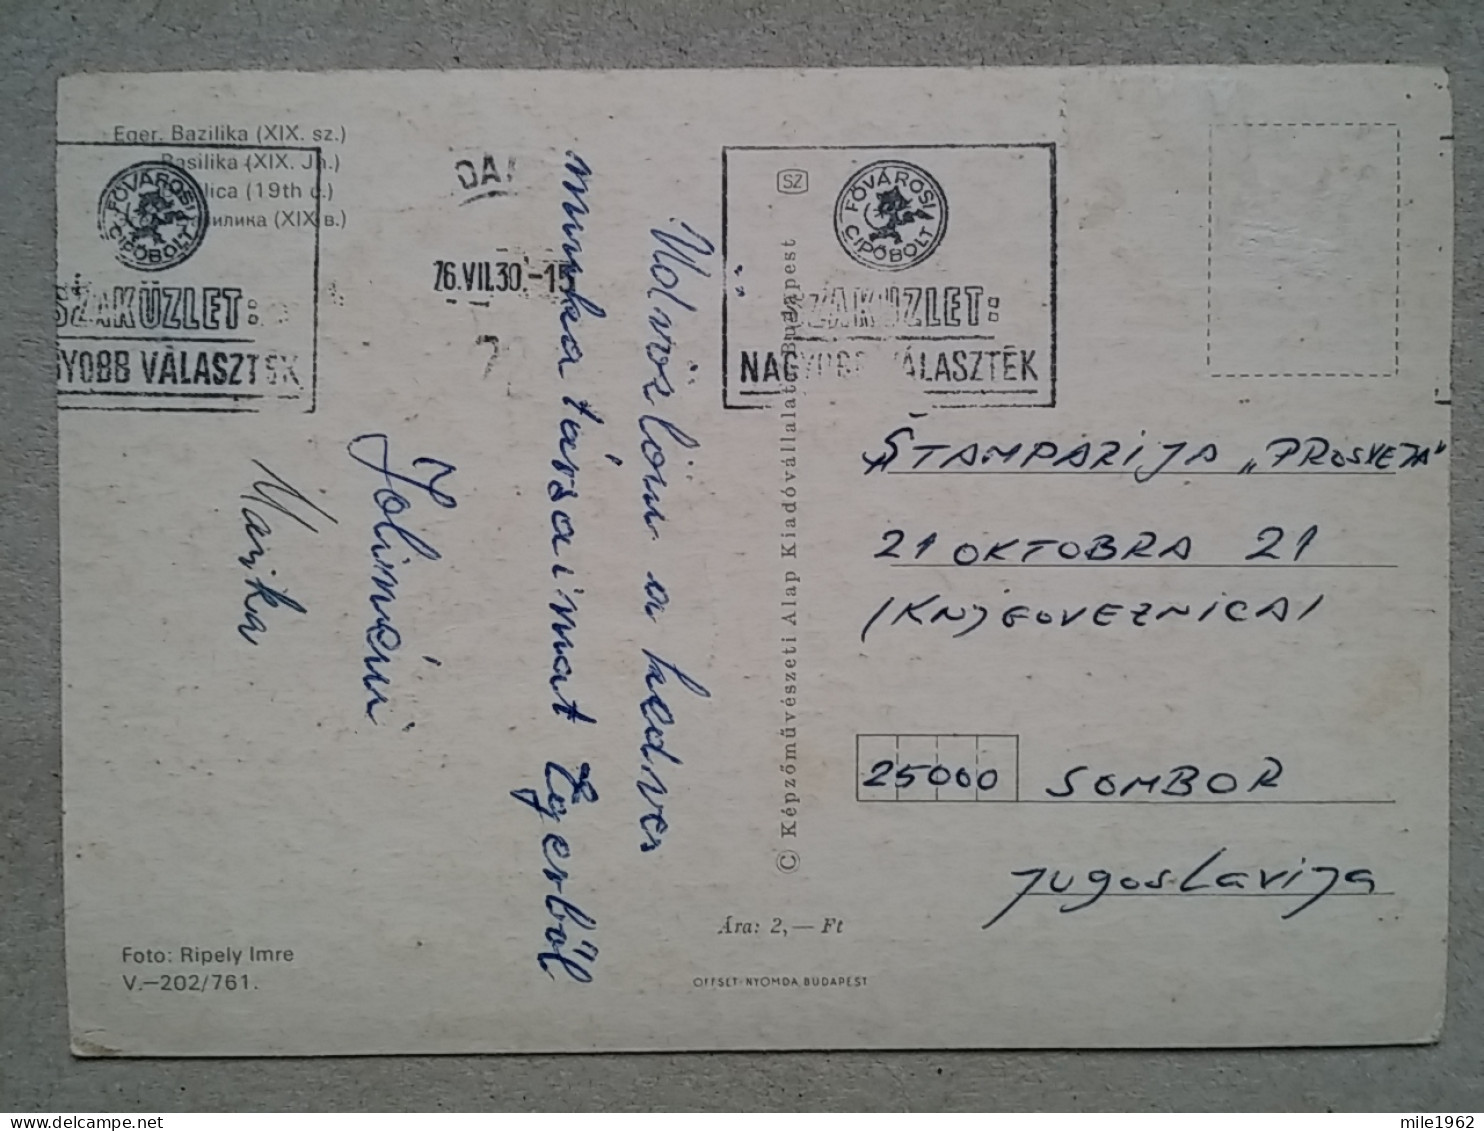 Eger. Bazilika (XIX. sz.)
Basilika (XIX. Jh.)
lica (19th c.)
илика (XIX в.)
FŐVÁROSI CIPŐBOLT
SZAKÜZLET:
GYOBB VÁLASZTÉK
76.VII.30.-15
FŐVÁROSI CIPŐBOLT
SZAKÜZLET:
NAGYOBB VÁLASZTÉK
SZ
Üdvözlöm a kedves
munka társaimat Egerből
Jolineni
Marika
© Képzőművészeti Alap Kiadóvállalat, Budapest
ŠTAMPARIJA „PROSVETA“
21 OKTOBRA 21
(KNJIGOVEZNICA)
25000 SOMBOR
Jugoslavija
Ára: 2,— Ft
Foto: Ripely Imre
V.—202/761.
OFFSET-NYOMDA, BUDAPEST
mile1962